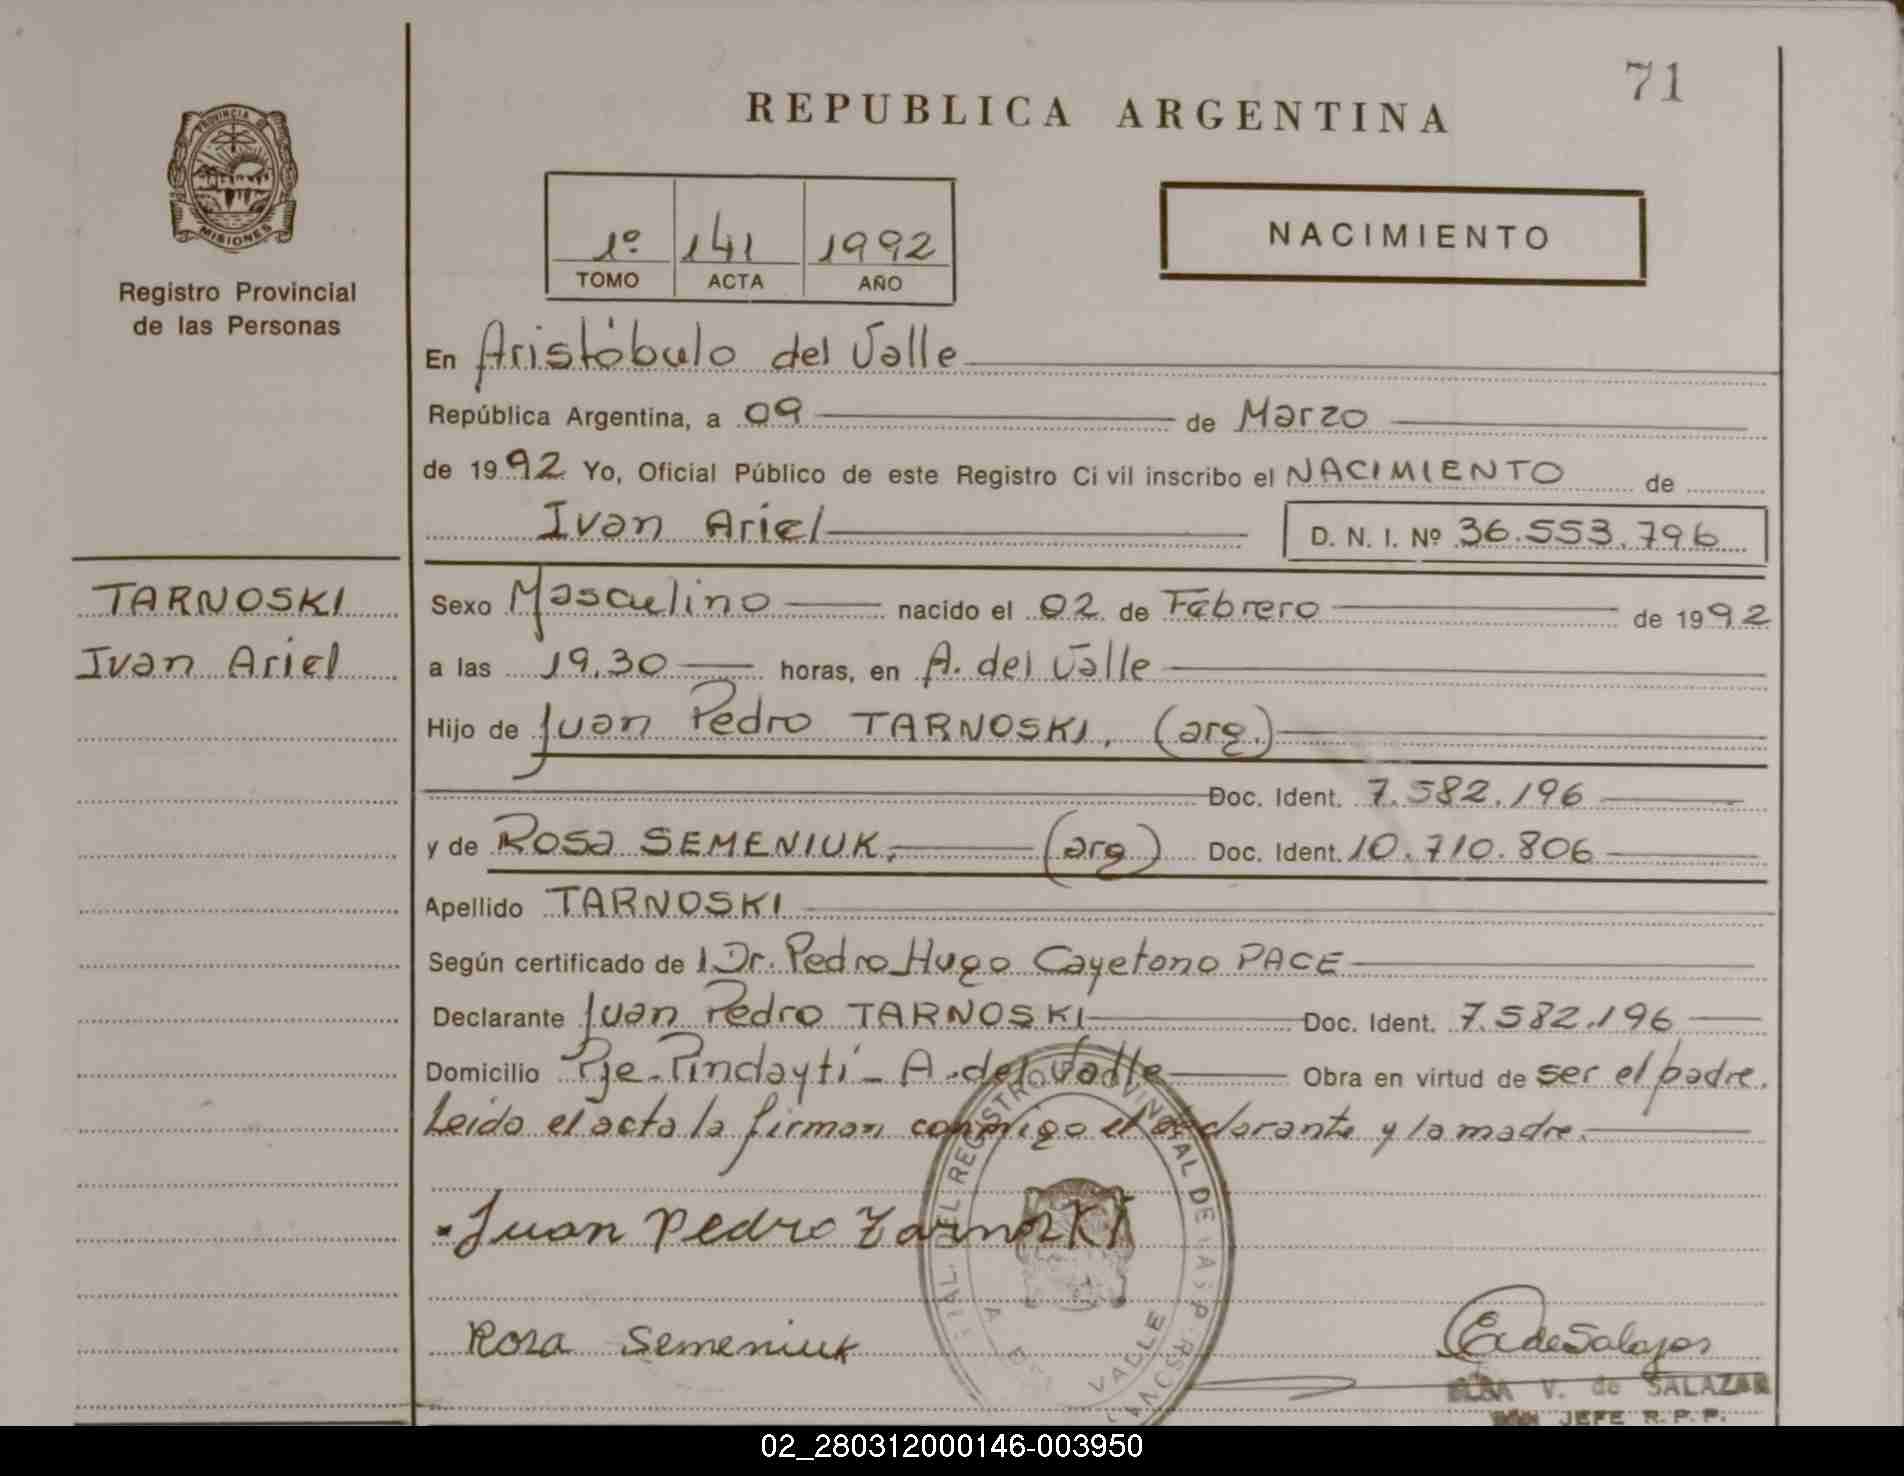 71
REPUBLICA ARGENTINA
PROVINCIA DE
MISIONES
Registro Provincial
de las Personas
1º 141 1992
TOMO ACTA AÑO
NACIMIENTO
En Aristóbulo del Valle
República Argentina, a 09 de Marzo
de 1992 Yo, Oficial Público de este Registro Civil inscribo el NACIMIENTO de
Ivan Ariel D. N. I. Nº 36.553.796
TARNOSKI
Ivan Ariel
Sexo Masculino nacido el 02 de Febrero de 1992
a las 19.30 horas, en A. del Valle
Hijo de Juan Pedro TARNOSKI, (arg.)
Doc. Ident. 7.582.196
y de Rosa SEMENIUK, (arg) Doc. Ident. 10.710.806
Apellido TARNOSKI
Según certificado de l Dr. Pedro Hugo Cayetano PACE
Declarante Juan Pedro TARNOSKI Doc. Ident. 7.582.196
Domicilio Pje. Pindaytí - A. del Valle Obra en virtud de ser el padre.
Leida el acta la firman conmigo el declarante y la madre.
Juan Pedro Tarnoski
Rosa Semeniuk
E de Salazar
ELSA V. de SALAZAR
JEFE R.P.P.
DEL REGISTRO PROVINCIAL DE LAS PERSONAS
VALLE
02_280312000146-003950